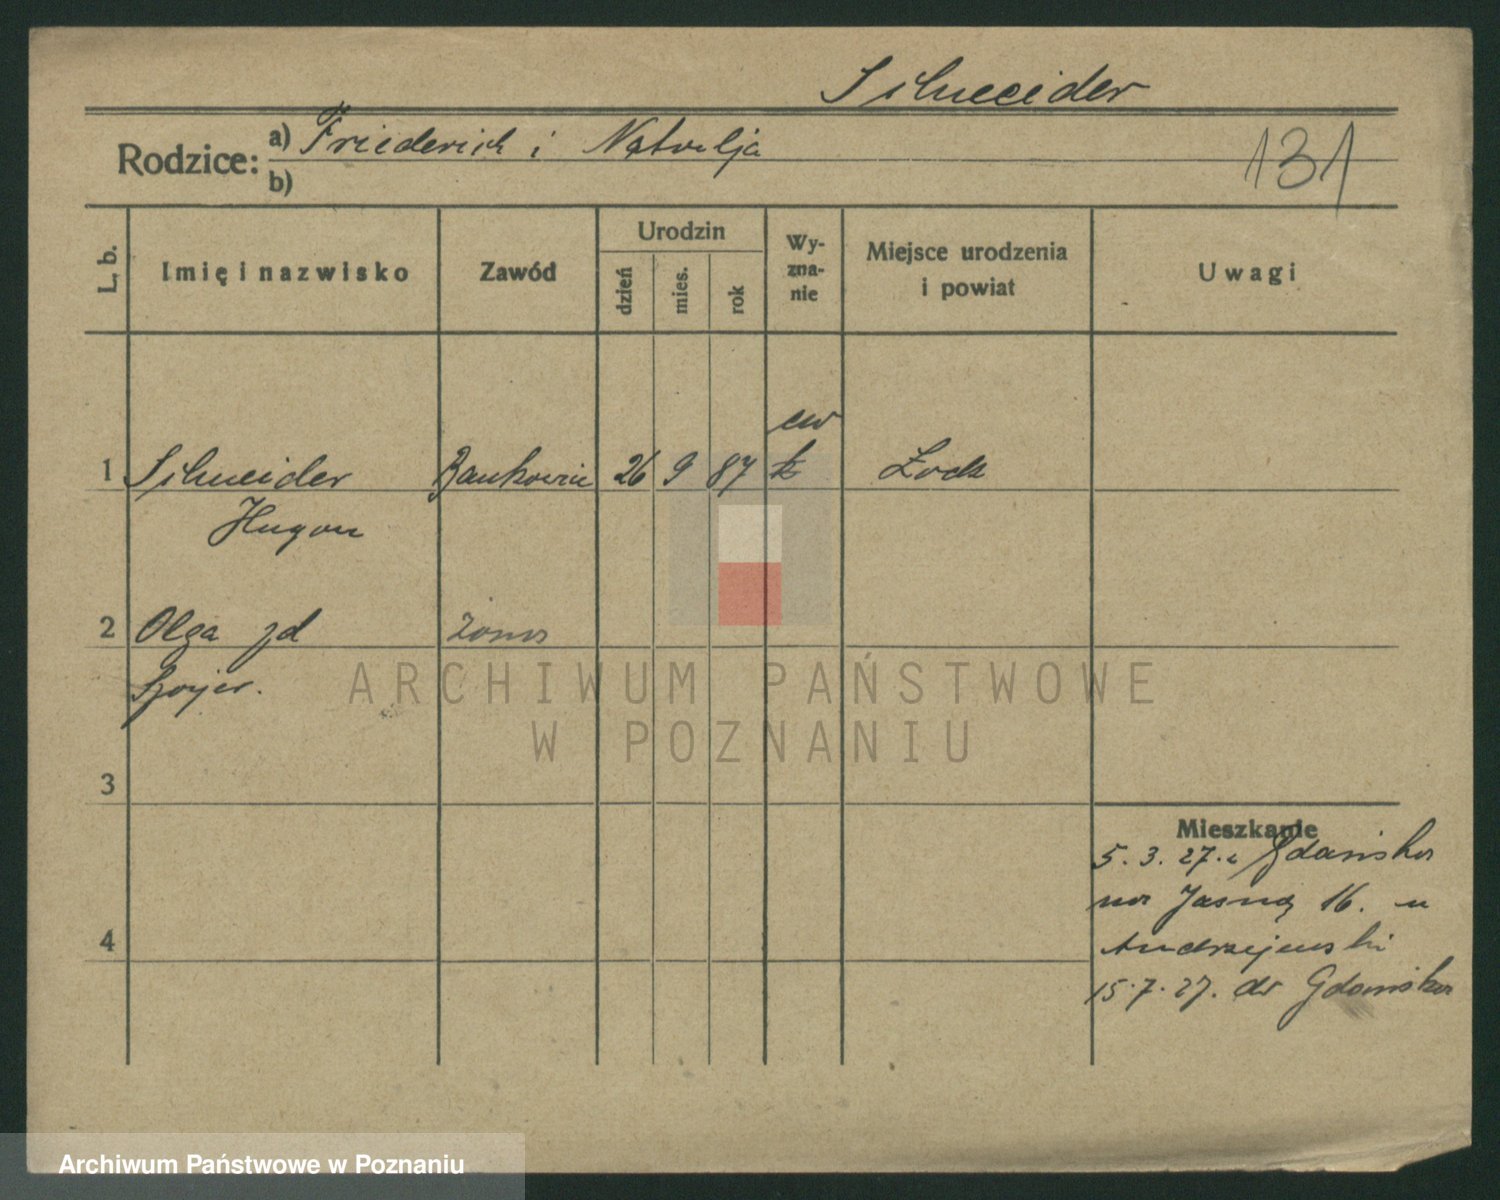 Schneider
Rodzice: a) Friederich i Natalja
131
b)
L. b.
Imię i nazwisko
Zawód
Urodzin
dzień
mies.
rok
Wy-
zna-
nie
Miejsce urodzenia
i powiat
Uwagi
ew
1 Schneider Bankowiec 26 9 87 Łodz
Hugon
2 Olga zd żona
3
Mieszkanie
5. 3. 27. z Gdańska
na Jasną 16. u
4 Andrzejewski
15.7.27. do Gdańska
ARCHIWUM PAŃSTWOWE
W POZNANIU
Archiwum Państwowe w Poznaniu